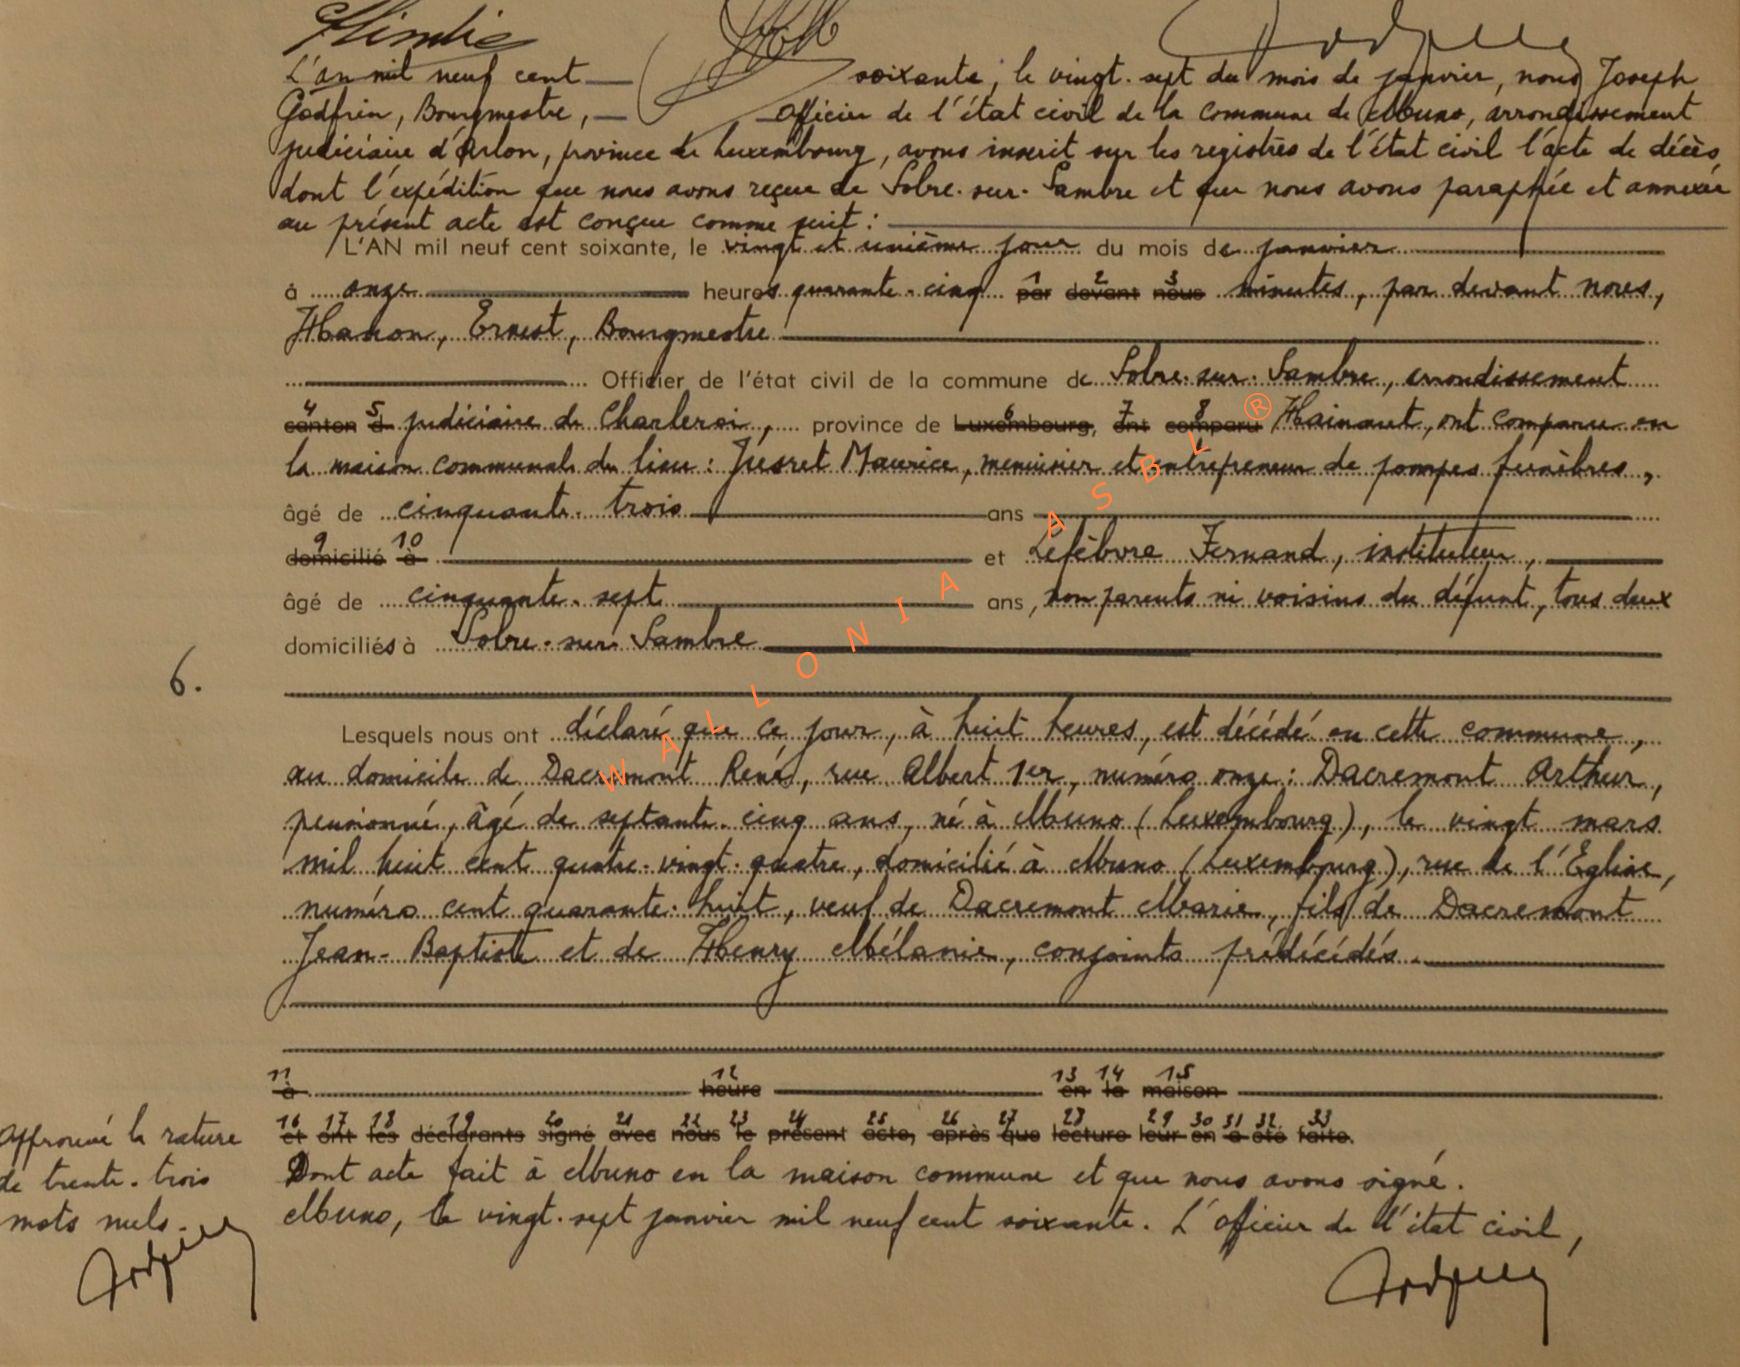 L'an mil neuf cent soixante, le vingt-sept du mois de janvier, nous Joseph
Godfrin, Bourgmestre, officier de l'état civil de la commune de Muno, arrondissement
judiciaire d'Arlon, province de Luxembourg, avons inscrit sur les registres de l'état civil l'acte de décès
dont l'expédition que nous avons reçue de Solre-sur-Sambre et que nous avons paraphée et annexée
au présent acte est conçue comme suit :
L'AN mil neuf cent soixante, le vingt et unième jour du mois de janvier
à onze heures quarante-cinq 1 par 2 devant 3 nous minutes, par devant nous,
Hanon, Ernest, Bourgmestre
Officier de l'état civil de la commune de Solre-sur-Sambre, arrondissement
4 canton 5 d judiciaire de Charleroi, province de 6 Luxembourg, 7 ont 8 comparu Hainaut, ont comparu en
la maison communale du lieu : Jusret Maurice, menuisier et entrepreneur de pompes funèbres,
âgé de cinquante-trois ans
9 domicilié 10 à et Lefèbvre Fernand, instituteur,
âgé de cinquante-sept ans, non parents ni voisins du défunt, tous deux
domiciliés à Solre-sur-Sambre
6.
Lesquels nous ont déclaré que ce jour, à huit heures, est décédé en cette commune,
au domicile de Dacremont René, rue Albert 1er, numéro onze : Dacremont Arthur,
pensionné, âgé de septante-cinq ans, né à Muno (Luxembourg), le vingt mars
mil huit cent quatre-vingt-quatre, domicilié à Muno (Luxembourg), rue de l'Eglise,
numéro cent quarante-huit, veuf de Dacremont Marie, fils de Dacremont
Jean-Baptiste et de Henry Mélanie, conjoints prédécédés.
11 à 12 heure 13 en 14 la 15 maison
16 et 17 ont 18 les 19 déclarants 20 signé 21 avec 22 nous 23 le 24 présent 25 acte, 26 après 27 que 28 lecture 29 leur 30 en 31 a 32 été 33 faite.
Approuvé la rature
de trente-trois
mots nuls.
Dont acte fait à Muno en la maison commune et que nous avons signé.
Muno, le vingt-sept janvier mil neuf cent soixante. L'officier de l'état civil,
WALLONIA ASBL ®